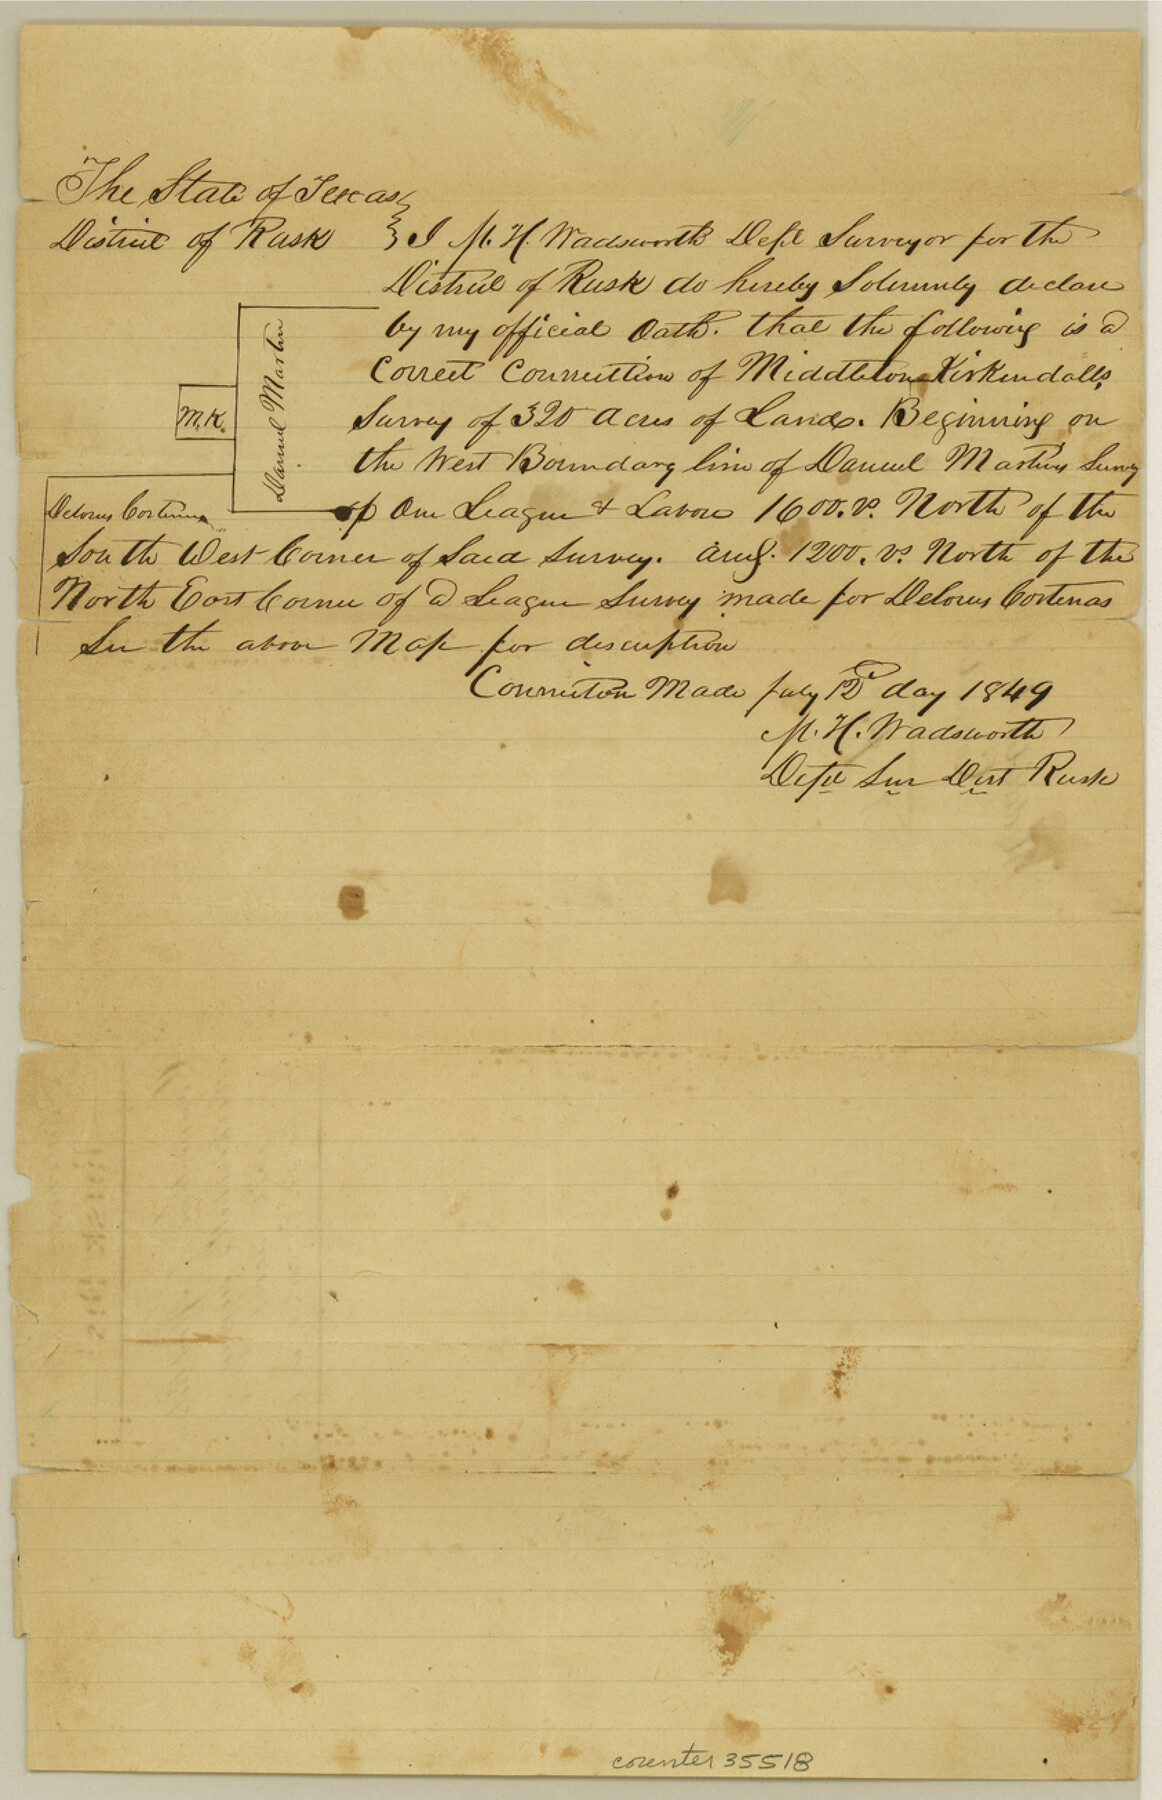 The State of Texas
District of Rusk } I M. H. Wadsworth Dept Surveyor for the
District of Rusk do hereby Solemnly declare
by my official Oath. that the following is a
Correct Connection of Middleton Kirkendalls
Survey of 320 acres of Land. Beginning on
the West Boundary line of Daniel Martins Survey
of One League & Labor 1600. vs. North of the
South West Corner of Said Survey. and. 1200. vs North of the
North East Corner of a League Survey made for Delorus Cortenas
See the above Map for description
Connection Made July 12th day 1849
M. H. Wadsworth
Dept Sur Dist Rusk
Daniel Martin
M.K.
Delorus Cortenas
counter 35518